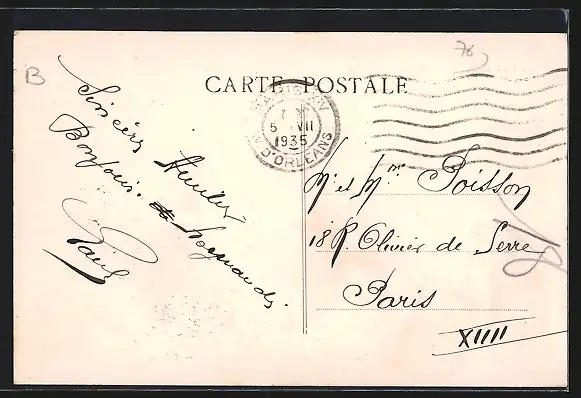 B
76
CARTE POSTALE
5 VII
1935
D'ORLEANS
Sincères Amitiés
Bonjour. de Normandie.
Paul
Mr et Mme Poisson
18 R. Olivier de Serre
Paris
XIIII